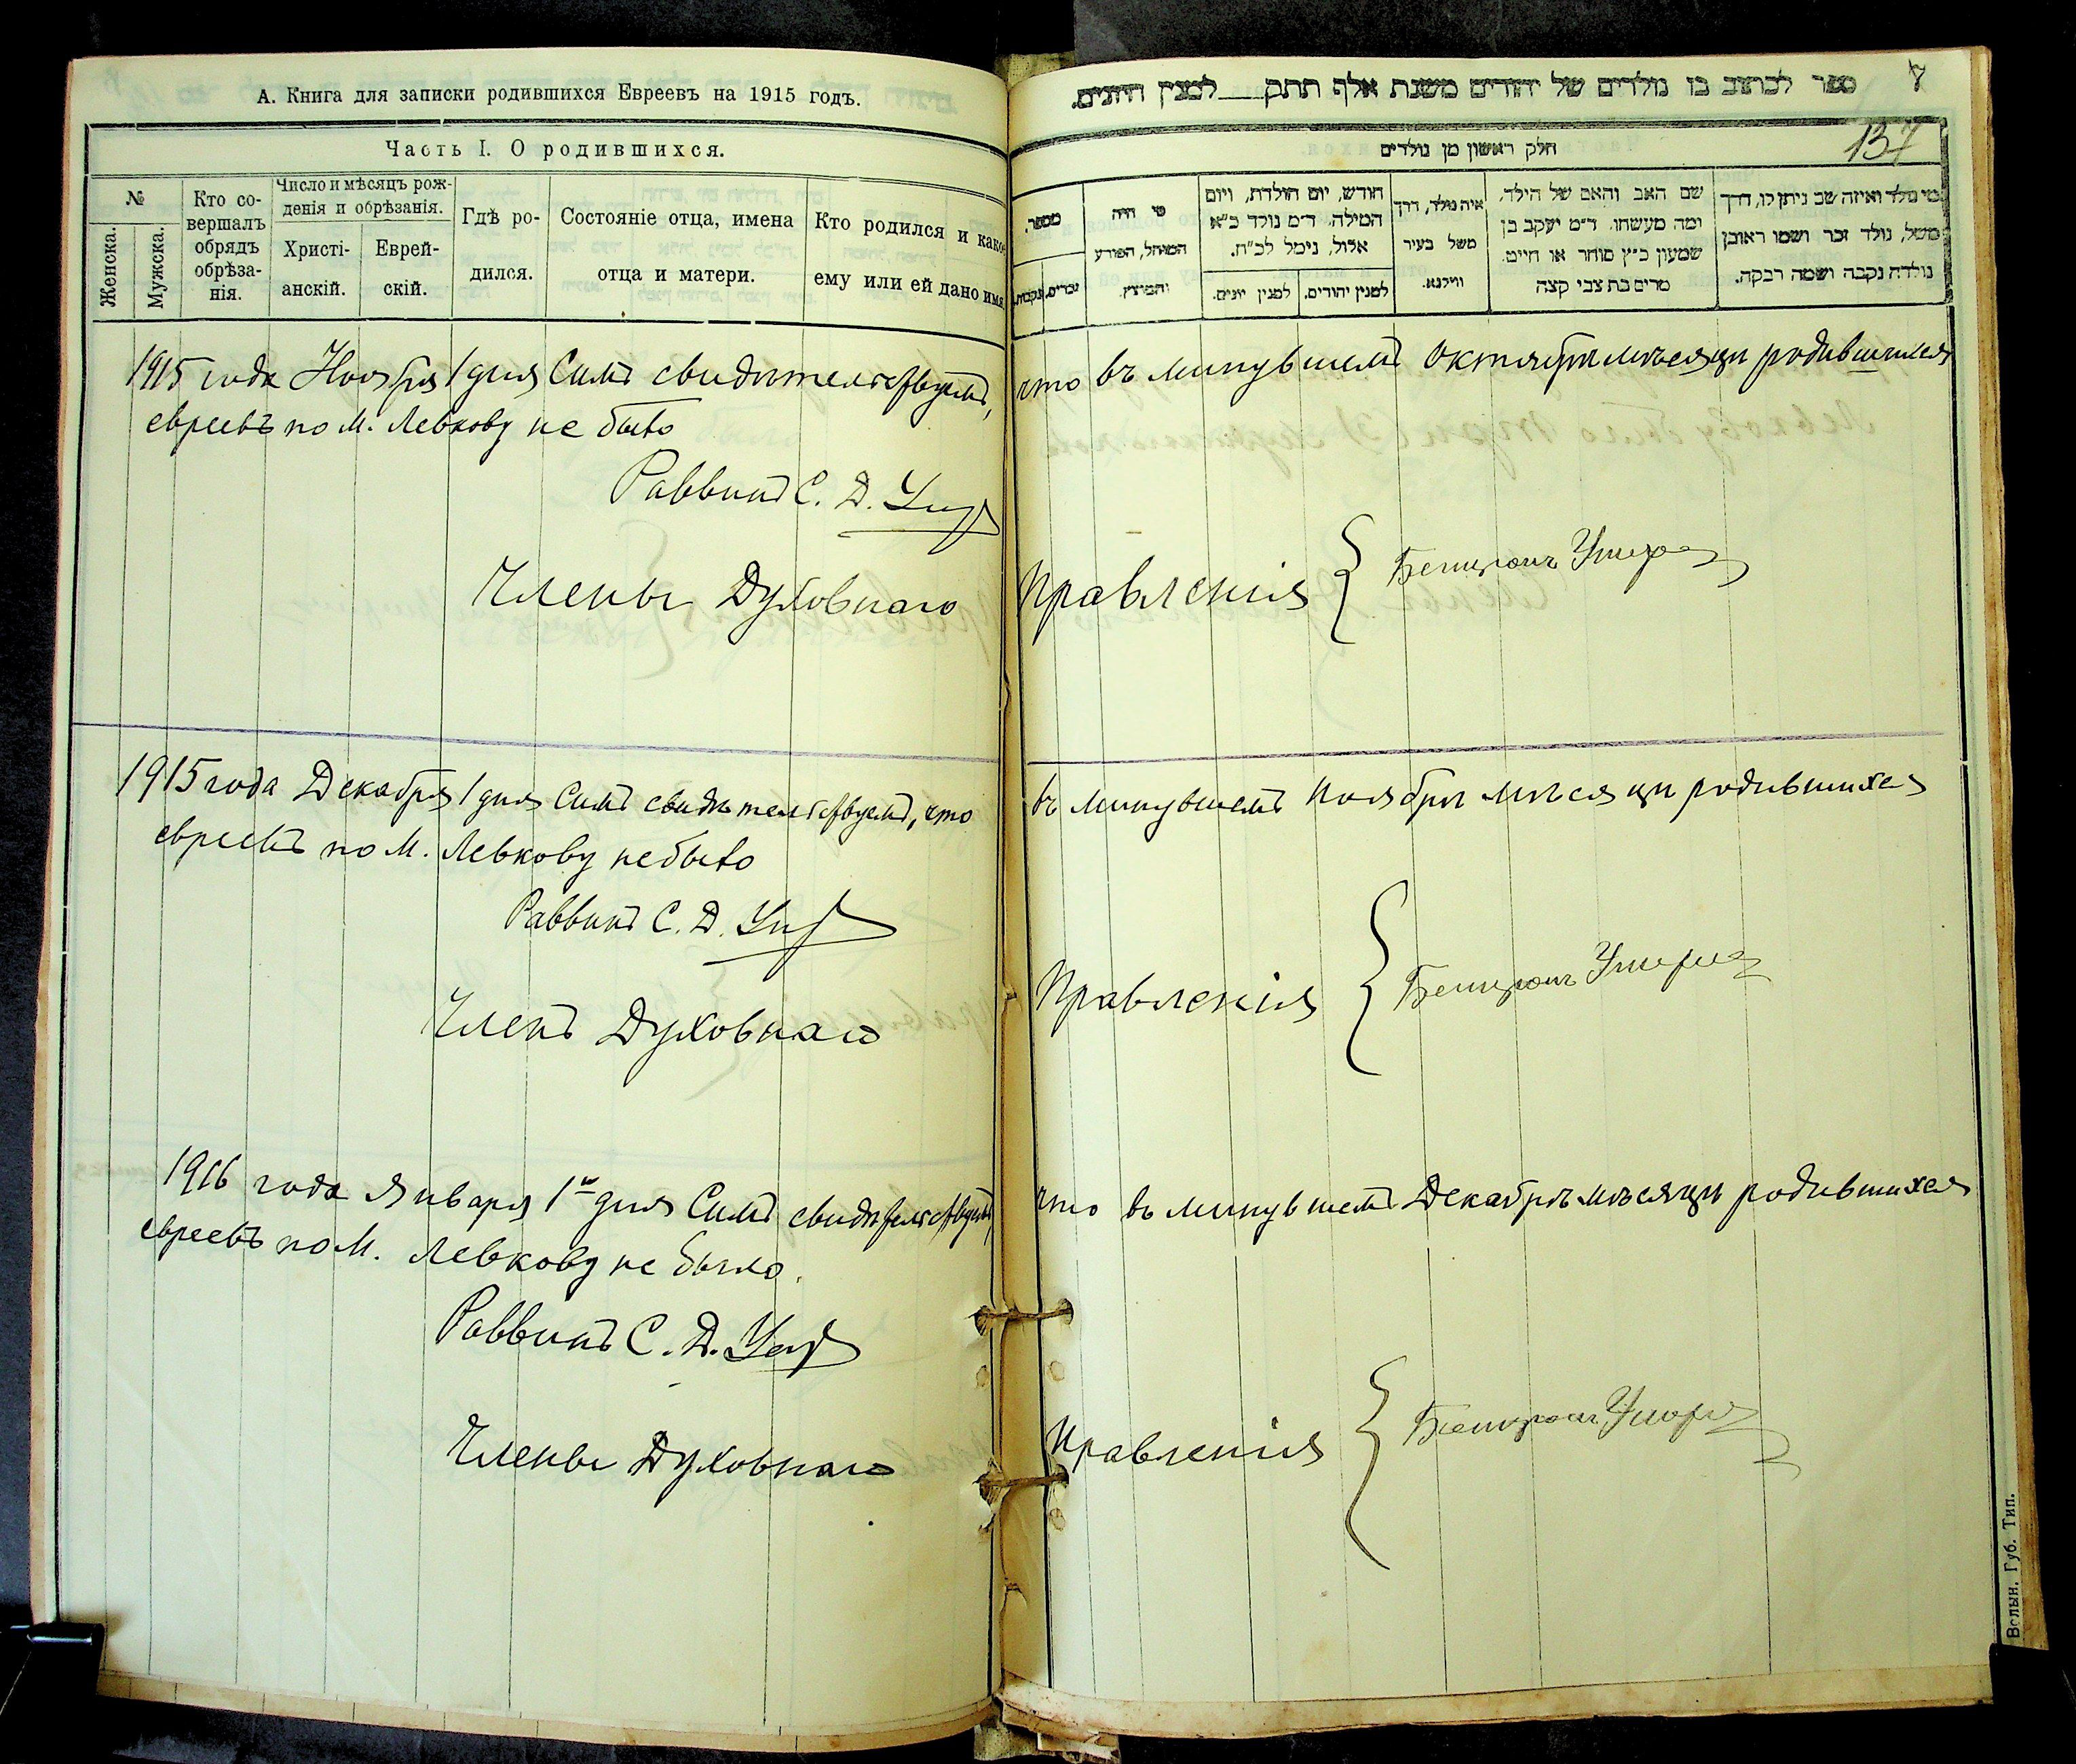 А. Книга для записки родившихся Евреевъ на 1915 годъ.
Часть I. О родившихся.
№
Женска.
Мужска.
Кто со-
вершалъ
обрядъ
обрѣза-
нія.
Число и мѣсяцъ рож-
денія и обрѣзанія.
Христі-
анскій.
Еврей-
скій.
Гдѣ ро-
дился.
Состояніе отца, имена
отца и матери.
Кто родился и какое
ему или ей дано имя
1915 года Ноября 1 дня Симъ свидѣтельствуемъ,
евреевъ по м. Левкову не было
Раввинъ С. Д.
Члены Духовнаго
1915 года Декабря 1 дня Симъ свидѣтельствуемъ, что
евреевъ по м. Левкову не было
Раввинъ С. Д.
Членъ Духовнаго
1916 года Января 1 дня Симъ свидѣтельствуемъ,
евреевъ по м. Левкову не было.
Раввинъ С. Д.
Члены Духовнаго
ספר לכתוב בו נולדים של יהודים משנת אלף תתק לכנין
7
137
חלק ראשון מן נולדים
מי נולד ואיזה שב ניתן לו, דרך
משל, נולד זכר ושמו ראובן
נולדה נקבה ושמה רבקה.
שם האב והאם של הילד,
ומה מעשהו. ד״מ יעקב בן
שמעון כ״ץ סוחר או חייט.
מרים בת צבי קצה
איה נולד, דרך
משל בעיר
ווילנא.
חודש, יום הולדת, ויום
המילה. ד״מ נולד כ״א
אלול, נימל לכ״ח.
למנין יהודים.
למנין יונים.
מי היה
המוהל, הפורע
והמוצץ.
מספר.
זכרים.
נקבות.
что въ минувшемъ Октябрѣ мѣсяцѣ родившихся
Правленія
въ минувшемъ Ноябрѣ мѣсяцѣ родившихся
Правленія
что въ минувшемъ Декабрѣ мѣсяцѣ родившихся
Правленія
Волын. Губ. Тип.